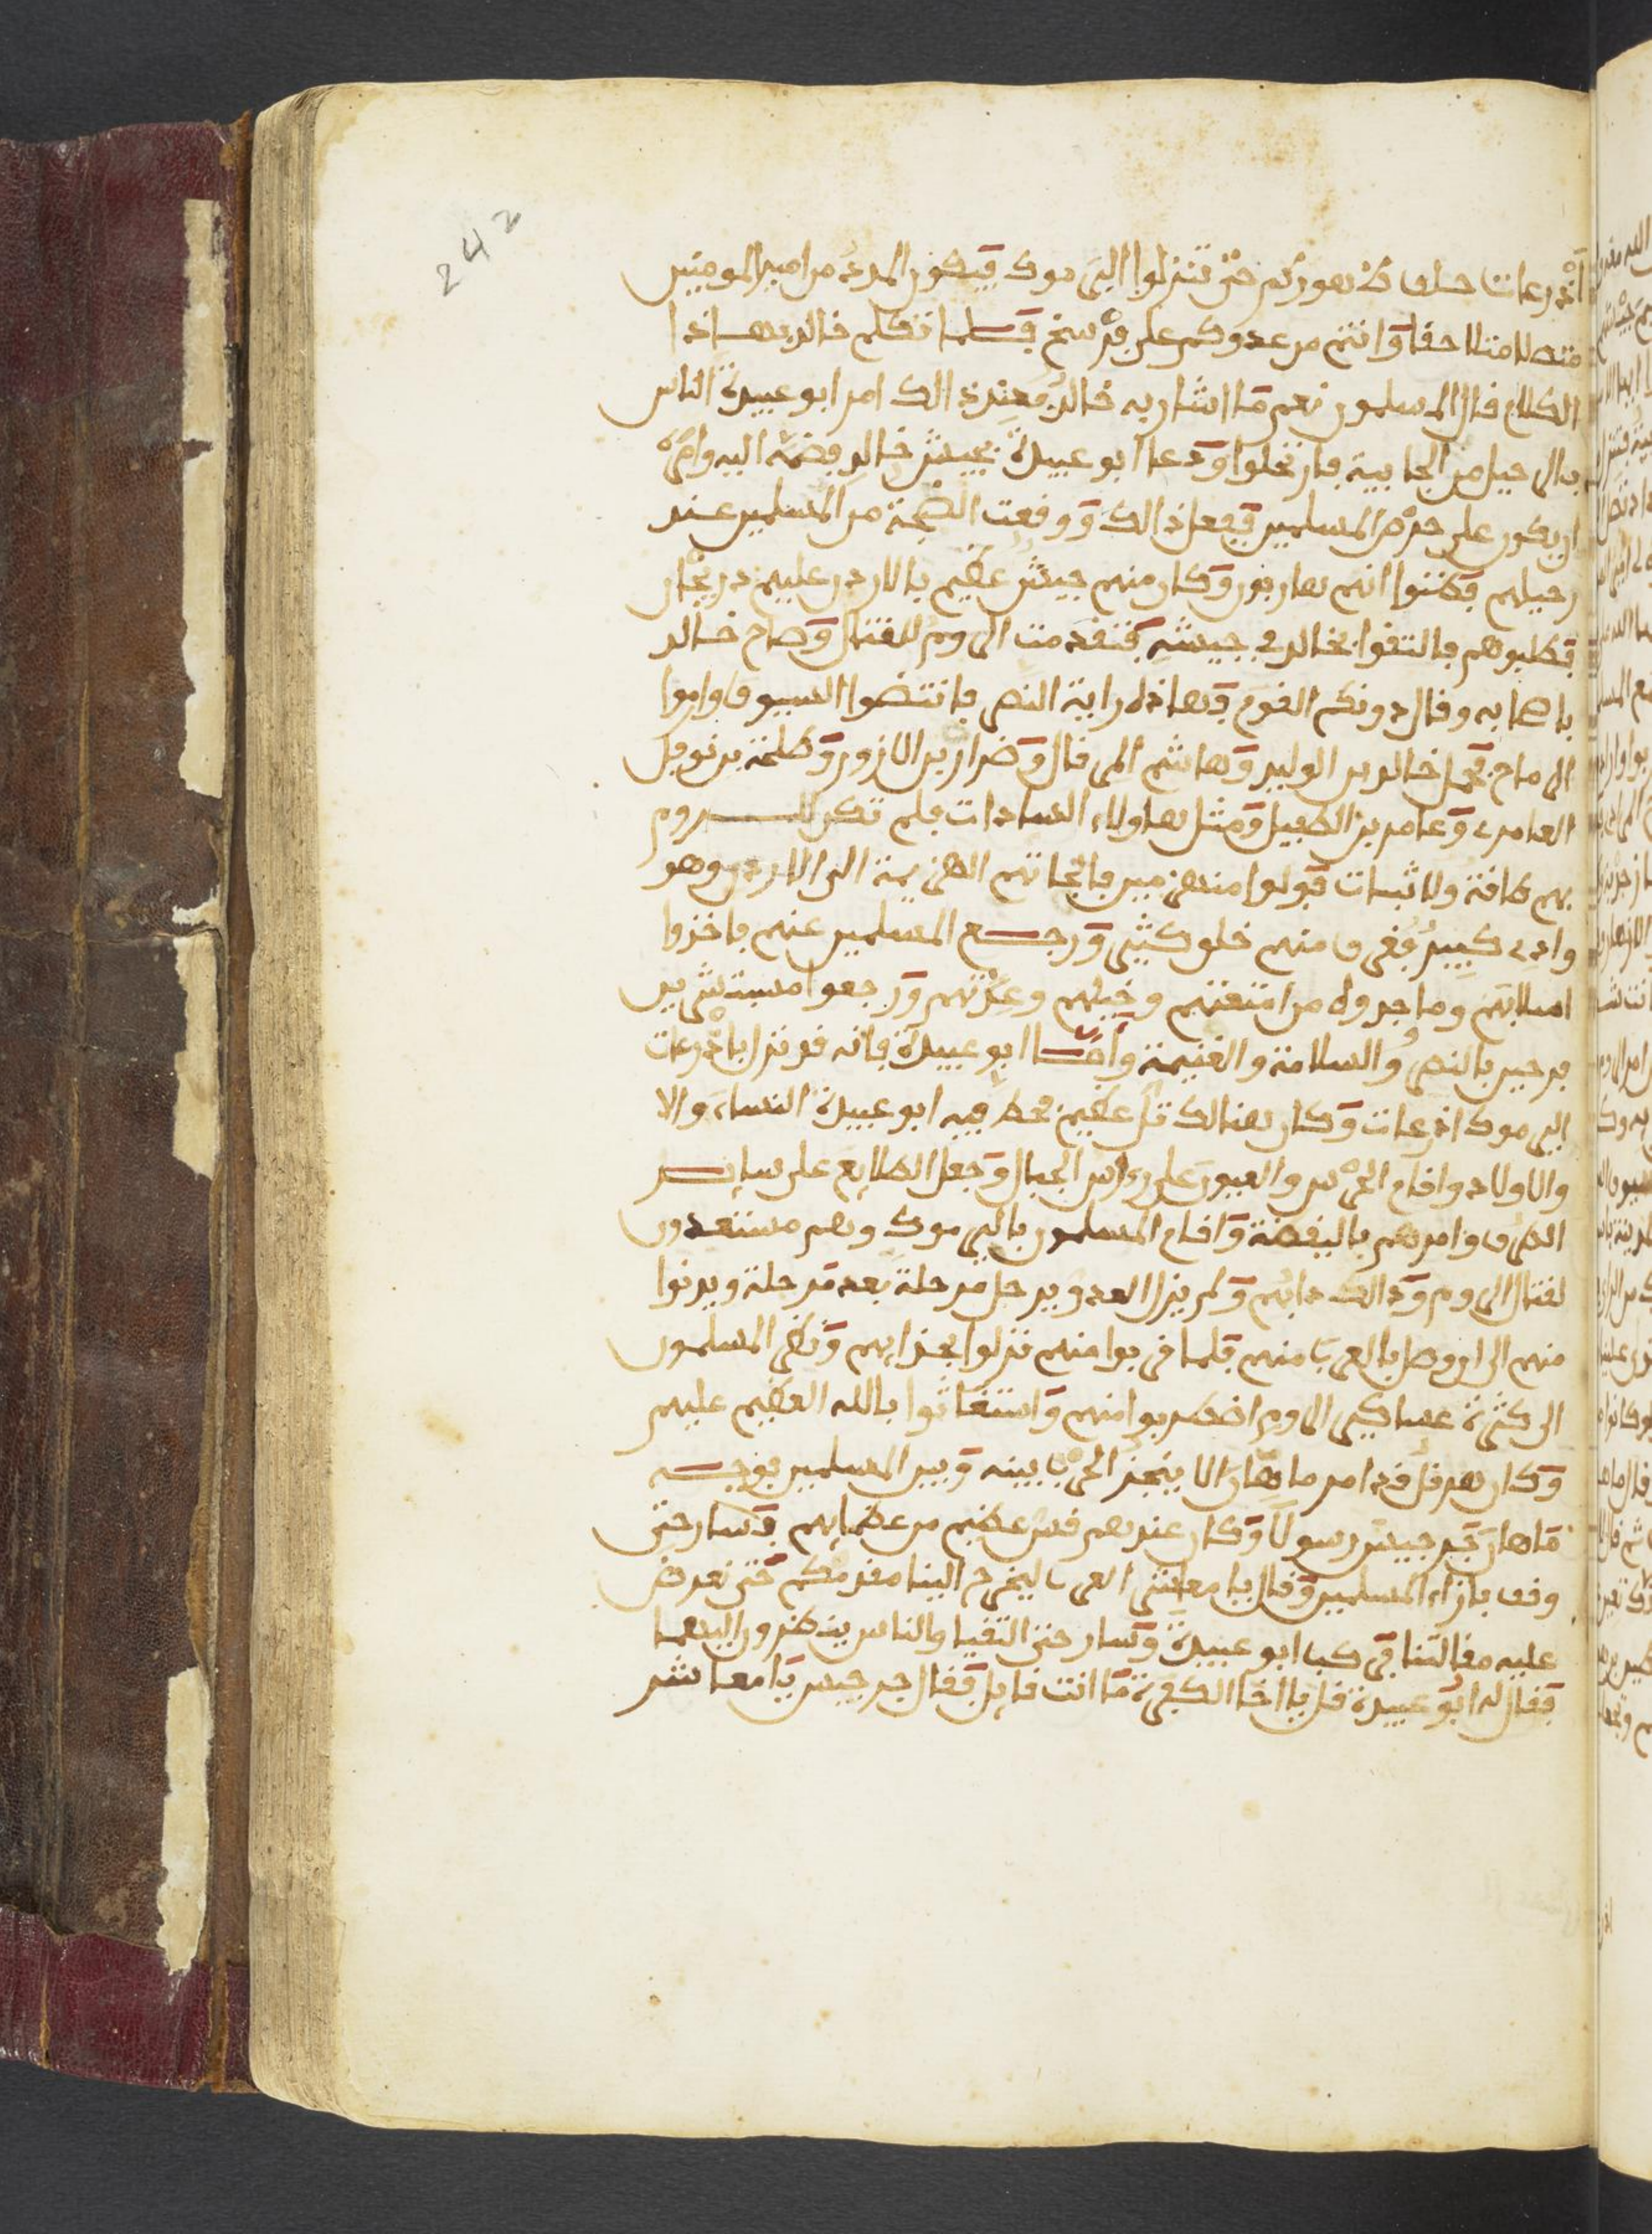 242
أذرعات خلف ظهوركم حتى تنزلوا اليرموك فيكون المدد من امير المومنين
متصلا متلاحقا وانتم من عدوكم على فرسخ فلما تكلم خالد بهاذا
الكلام قال المسلمون نعم ما اشار به خالد فعند ذالك امر ابو عبيدة الناس
بالرحيل من الجابية فارتحلوا ودعا ابو عبيدة بجيش خالد فضمه اليه وامره
ان يكون على حرس المسلمين ففعل ذالك ووقعت الضجة من المسلمين عند
رحيلهم فظنوا انهم هاربون وكان منهم جيش عظيم بالاردن عليهم درنجار
فطلبوهم فالتقوا بخالد في جيشه فتقدمت الروم للقتال وصاح خالد
باصحابه وقال دونكم القوم فهاذه راية النصر فانتضوا السيوف واموا
الرماح فحمل خالد بن الوليد وهاشم المرقال وضرار بن الازور وطلحة بن نوفل
العامرى وعامر بن الطفيل ومثل هاولاء السادات فلم تكن للروم
بهم طاقة ولا ثبات فولوا منهزمين فالجاتهم الهزيمة الى الاردن وهو
وادى كبير فغرق منهم خلق كثير ورجع المسلمين عنهم فاخذوا
اسلابهم وما جدوه من امتعتهم وخيلهم وعدتهم ورجعوا مستبشرين
فرحين بالنصر والسلامة والغنيمة وأما ابو عبيدة فانه قد نزل باذرعات
اليرموك اذرعات وكان هنالك تل عظيم فحط فيه ابو عبيدة النساء والا
والاولاد واقام الحرس والعيون على رءاس الجبال وجعل الطلايع على ساير
الطرق وامرهم باليقظة واقام المسلمون باليرموك وهم مستعدون
لقتال الروم وذالك دابهم ولم يزل العدو يرحل مرحلة بعد مرحلة ويدنوا
منهم الى ان وصل بالقرب منهم فلما قربوا منهم نزلوا بحذايهم ونظر المسلمون
الى كثرة عساكر الروم اضطربوا منهم واستغاثوا بالله العظيم عليهم
وكان هرقل قد امر ماهان الا ينجز الحرب بينه وبين المسلمين فوجه
ماهان جرجيس رسولا وكان عندهم قس عظيم من عظمايهم فسار حتى
وقف بازاء المسلمين وقال يا معاشر العرب ليخرج الينا مقدمكم حتى نعرض
عليه مقالتنا فركب ابو عبيدة وسار حتى التقيا والناس ينظرون اليهما
فقال له ابو عبيدة قل يا اخا الكفرة ما انت قايل فقال جرجيس يا معاشر